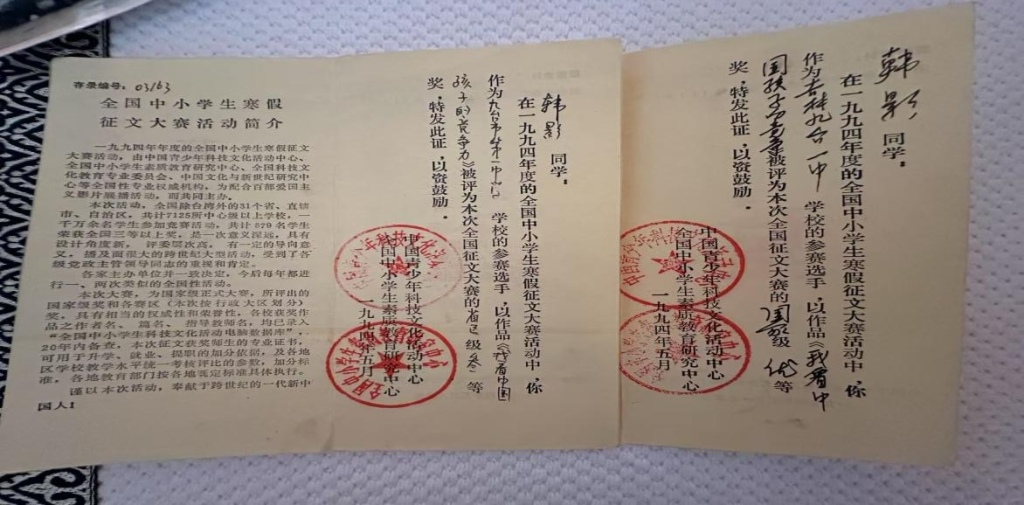 存录编号：03163
全国中小学生寒假
征文大赛活动简介
一九九四年年度的全国中小学生寒假征文
大赛活动，由中国青少年科技文化活动中心、
全国中小学生素质教育研究中心、全国科技文
化教育专业委员会、中国文化与新世纪研究中
心等全国性专业权威机构，为配合百部爱国主
义影片展播活动，而共同主办。
本次活动，全国除台湾外的31个省、直辖
市、自治区，共计7125所中心级以上学校，一
千万余名学生参加竞赛活动，共计879名学生
荣获全国三等以上奖，是一次意义深远，具有
设计角度新，评委层次高，有一定的导向意
义，播及面很大的跨世纪大型活动，受到了各
级党政主管领导同志的重视和肯定。
各家主办单位并一致决定，今后每年都进
行一、两次类似的全国性活动。
本次大赛，为国家级正式大赛，所评出的
国家级奖和各赛区（本次按行政大区划分）
奖，具有相当的权威性和荣誉性，各校获奖作
品之作者名、篇名、指导教师名，均已录入
“全国中小学生科技文化活动电脑数据库”，
20年内备查，本次征文获奖师生的专业证书，
可用于升学、就业、提职的加分依据，及各地
区学校教学水平统一考核评比的参数，加分标
准，各地教育部门按各地既定标准具体执行。
谨以本次活动，奉献于跨世纪的一代新中
国人！
韩影 同学，
在一九九四年度的全国中小学生寒假征文大赛活动中，你
作为九台市第一中 学校的参赛选手，以作品《我看中国
孩子的竞争力》被评为本次全国征文大赛的省区级叁等
奖，特发此证，以资鼓励。
中国青少年科技文化活动中心
全国中小学生素质教育研究中心
一九九四年五月
韩影 同学，
在一九九四年度的全国中小学生寒假征文大赛活动中，你
作为吉林九台一中 学校的参赛选手，以作品《我看中
国孩子 被评为本次全国征文大赛的国家级优等
奖，特发此证，以资鼓励。
中国青少年科技文化活动中心
全国中小学生素质教育研究中心
一九九四年五月